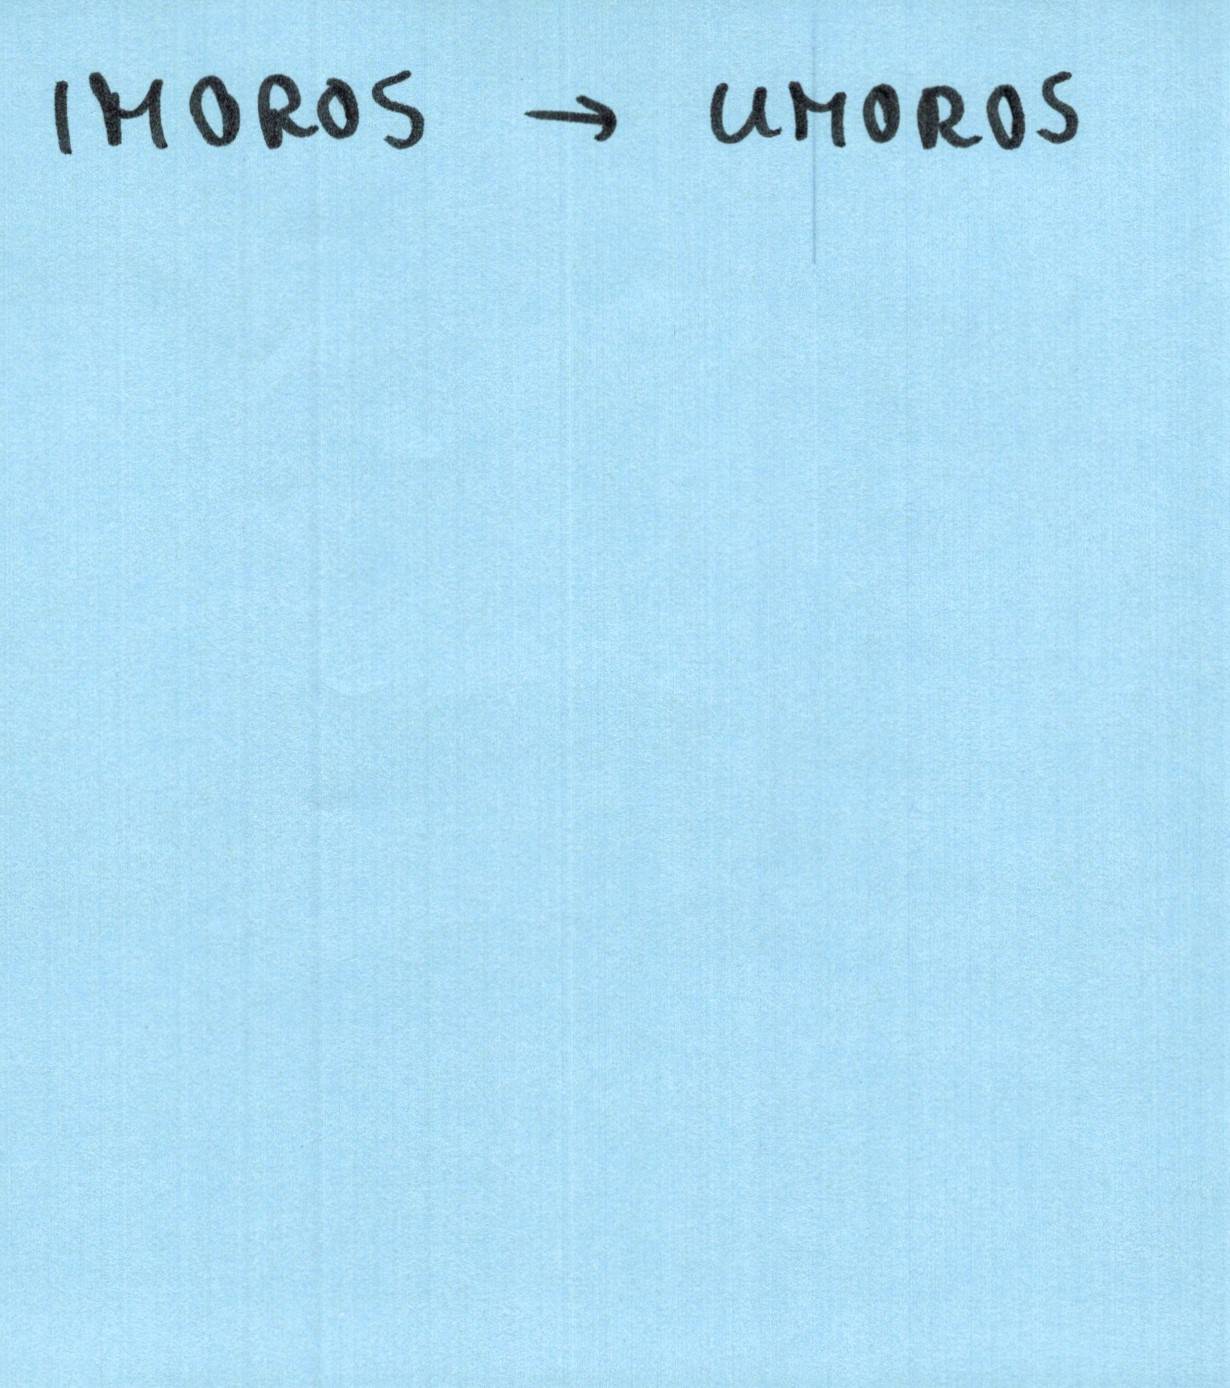 IMOROS → UMOROS